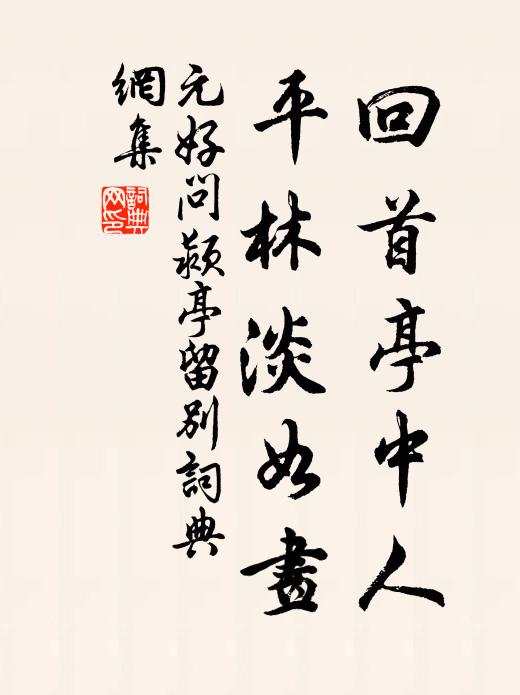 回首亭中人
平林淡如畫
元好問潁亭留別詞典
網集
詞典网印